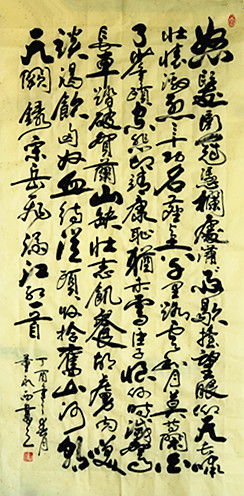 怒髮衝冠憑欄處瀟瀟雨歇擡望眼仰天長嘯
壯懷激烈三十功名塵與土八千里路雲和月莫等閒白
了少年頭空悲切靖康恥猶未雪臣子恨何時滅駕
長車踏破賀蘭山缺壯志飢餐胡虜肉笑
談渴飲匈奴血待從頭收拾舊山河朝
天闕錄宋岳飛滿江紅一首
丁酉年